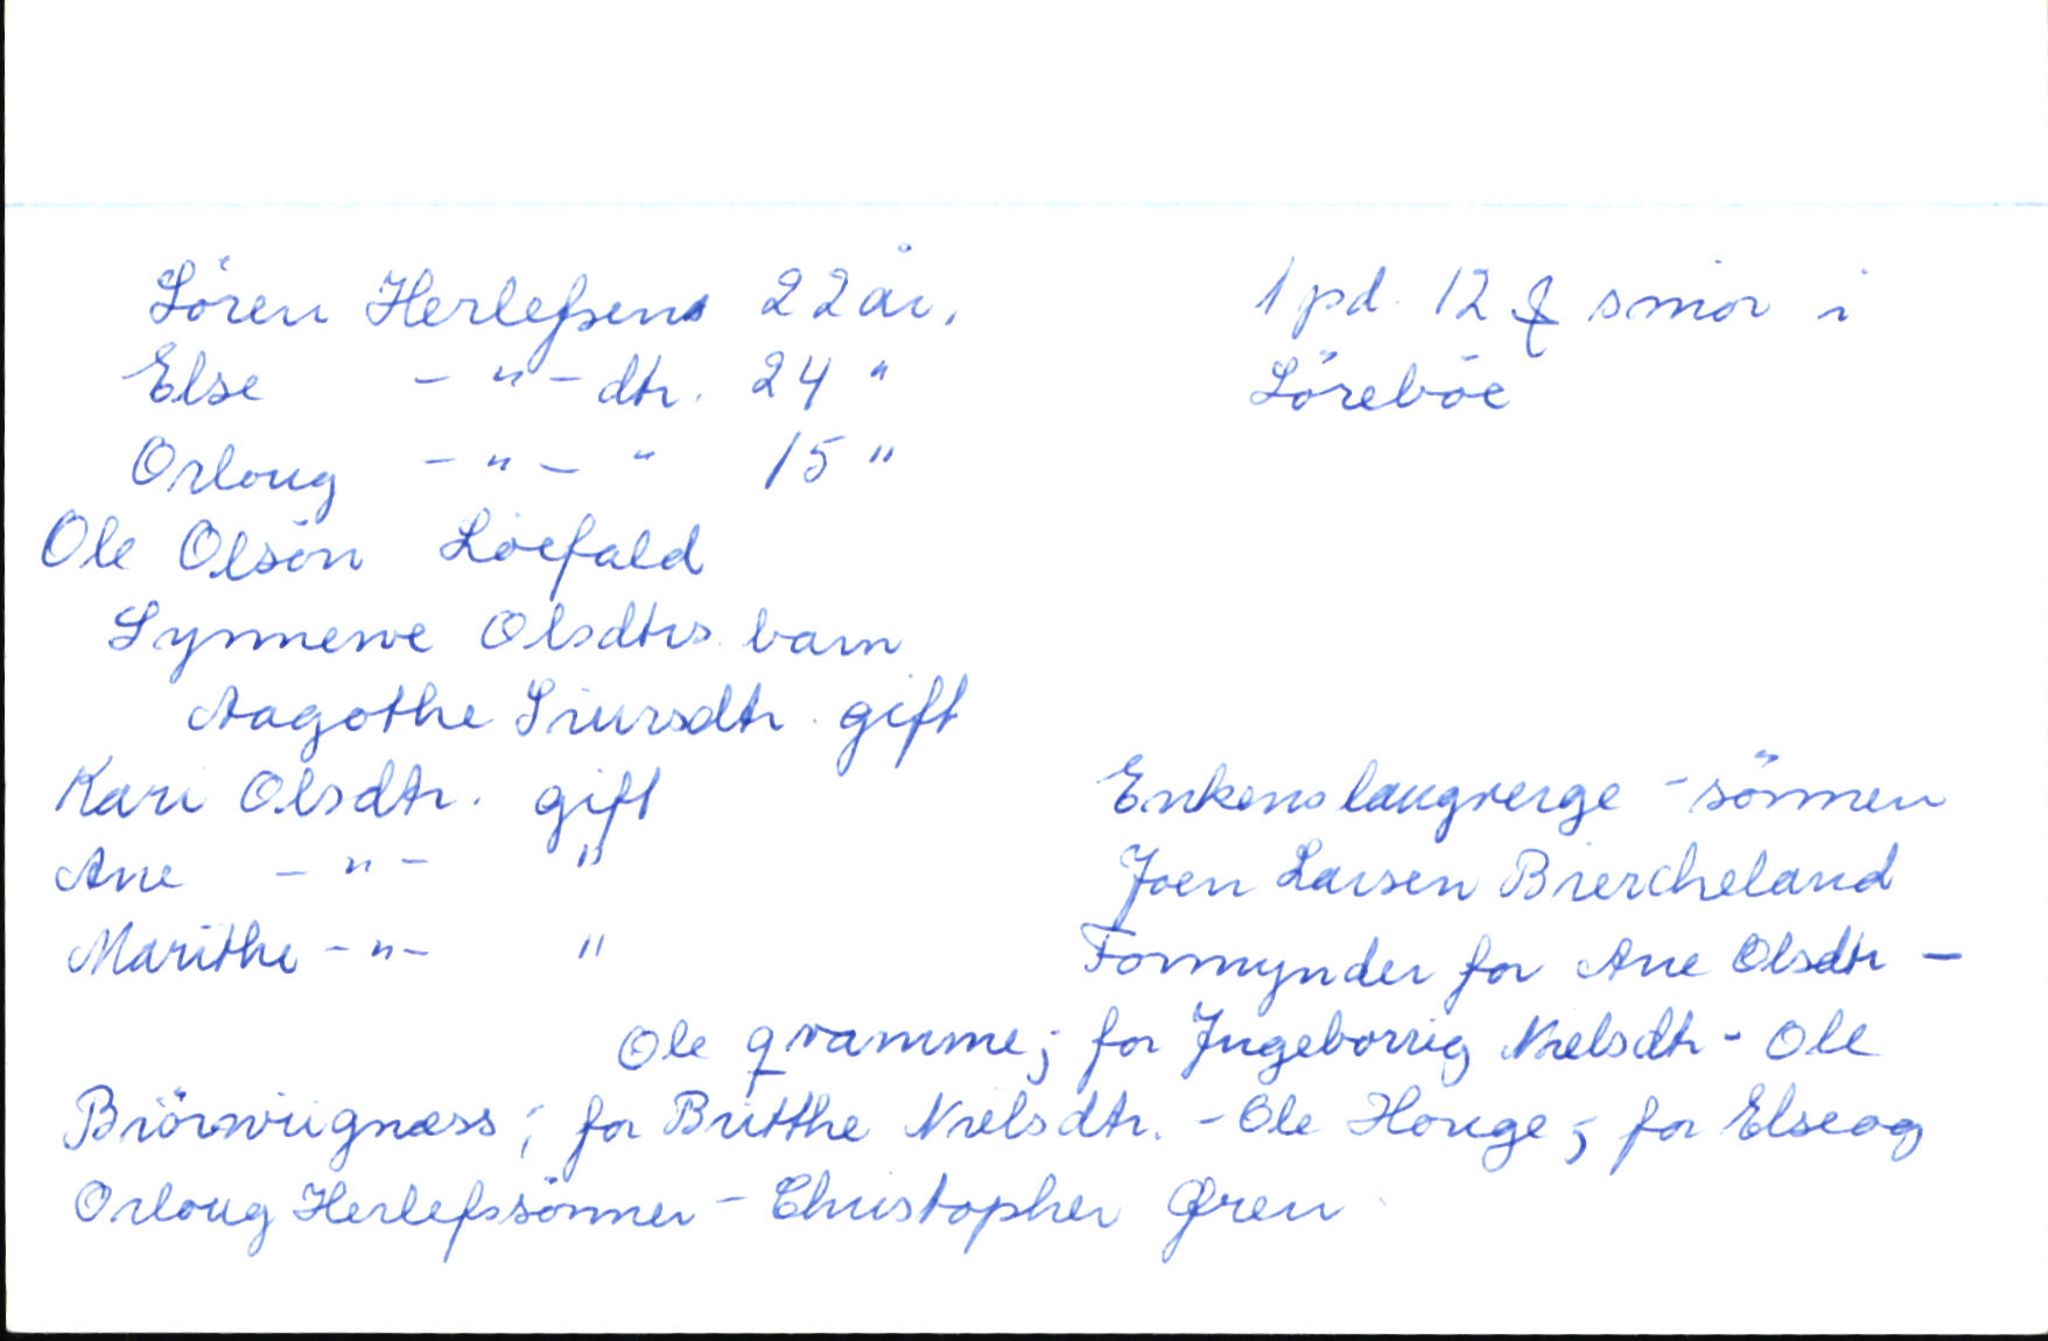 Sören Herlefsens 22 år,
1 pd. 12 ₰ smiør i
Else - " - dtr. 24 "
Sörebøe
Orloug - " - " 15 "
Ole Olsön Löefald
Synnewe Olsdtrs barn
Aagothe Siursdtr. gift
Kari Olsdtr. gift
Enkens laugverge - sönnen
Ane - " - "
Joen Larsen Biercheland
Marithe - " - "
Formynder for Ane Olsdtr -
Ole qvamme; for Ingeborrig Nielsdtr - Ole
Biörnviignæss; for Britthe Nielsdtr. - Ole Houge; for Else og
Orloug Herlefssönner - Christopher Øren